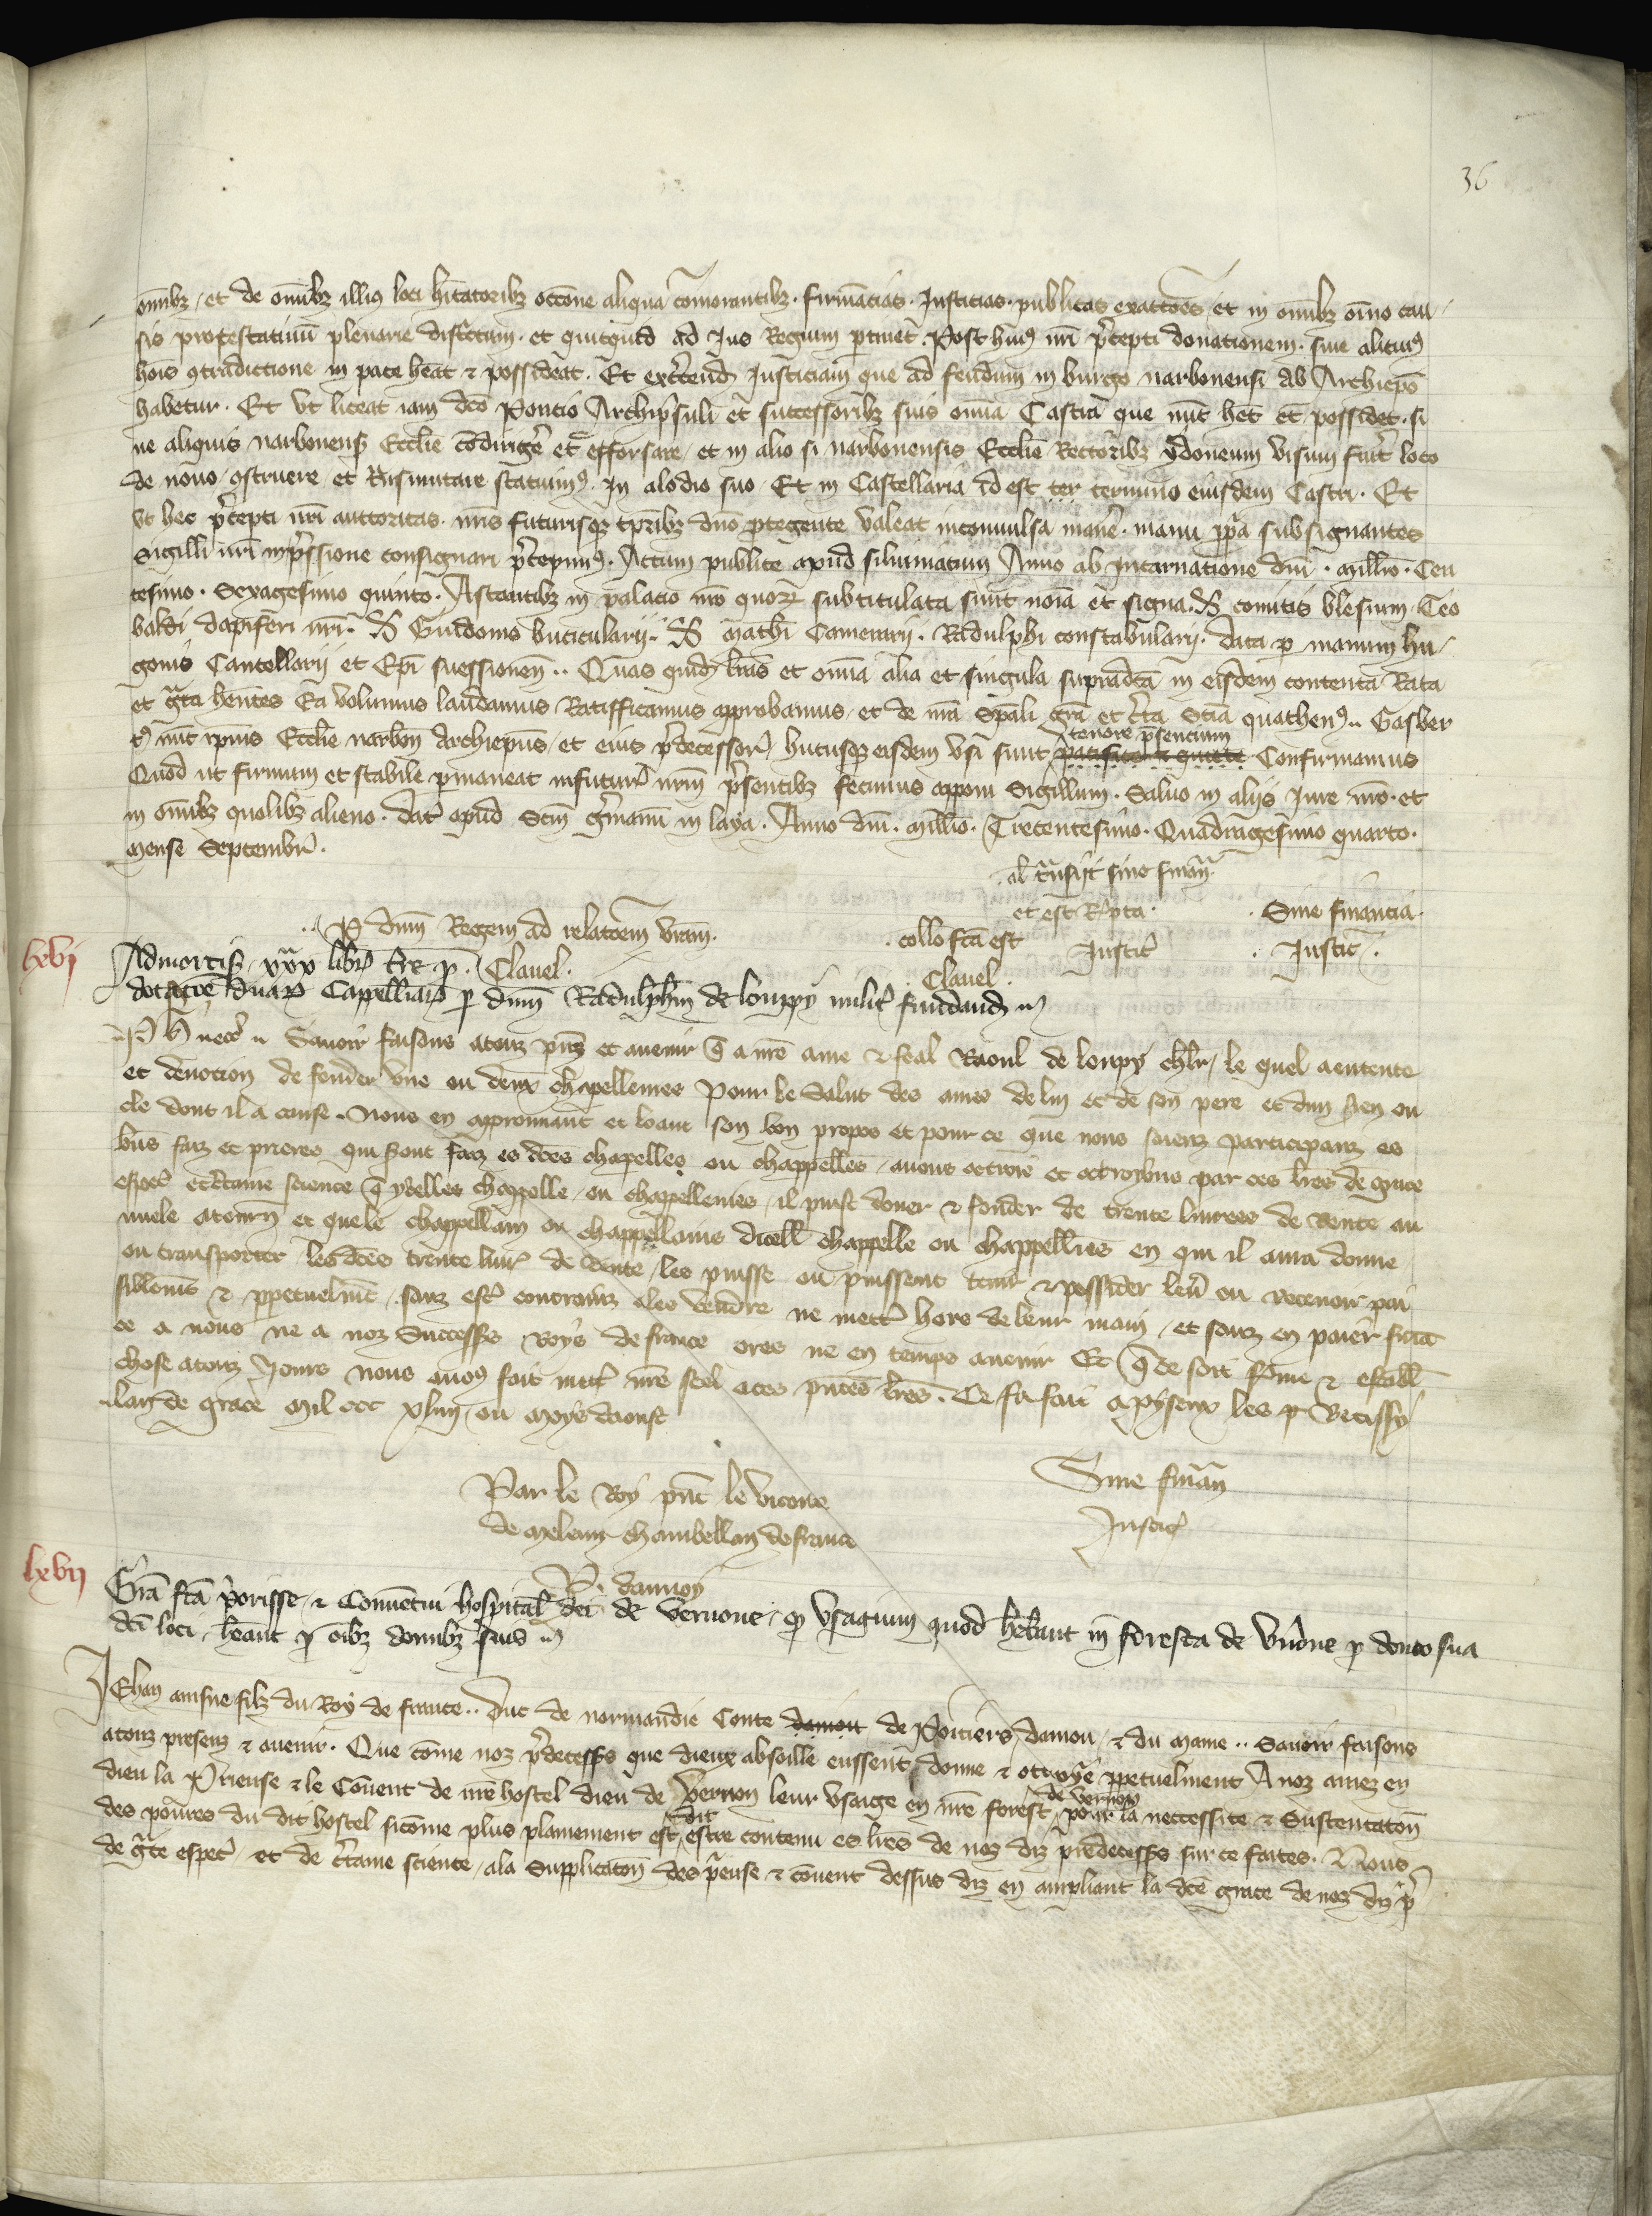 36
om̄ibꝫ, et de om̄ibꝫ illiꝰ loci h̄itatoribꝫ occōne aliqua com̄orantibꝫ. firmācias. Justicias. publicas exactōes et in om̄ibꝫ om̄o cau
sis protestatiuū plenarie districtum. et quitquid ad Jus Regium ꝑtinet. Post huiꝰ nr̄i p̄cepti donationem. sine alicuiꝰ
hōis ꝯtradictione in pace heāt ⁊ possideāt. Et exercend Justiciam que ad feudum in burgo narbonensi ab Archiepō
habetur. Et vt liceat iam dc̄o Poncio Archip̄suli et successoribꝫ suis om̄ia Castra que nūc het et possidet. si
ne aliquis narbonens Ecclīe condirigere et efforsare, et in alio si narbonensis Ecclīe Rectoribꝫ ydoneum visum fuit loco
de nouo ꝯstruere et Transmutare statuimꝰ. In alodio suo. Et in Castellaria id est ter termino eiusdem Castri. Et
vt hec p̄cepti nr̄i auttoritas. nr̄is futurisqꝫ tp̄ribꝫ dn̄o ꝓtegente valeat inconuulsa maner̄. manu ꝓpa subsignantes
Sigilli nr̄i inp̄ssione consignari p̄cepimꝰ. Actum publice apud siluinatum Anno ab Incarnatione dnī. millīo. Cen
tesimo. Sexagesimo quinto. Astantibꝫ in palacio nr̄o quorꝝ subtitulata sunt noīa et signa. S. comitis blesium. Teo
baldi dapiferi nr̄i. S. Guidonis buticularij. S. mathi Camerarij. Radulphi constabularij. data ꝑ manum hu
gonis Cancellarij et Epī suessionen̄.. Quas quidē lr̄as et om̄ia alia et singula supradc̄a in eisdem contenta Rata
et grata hentes Ea volumus laudamus Ratifficamus approbamus, et de nr̄a Spāli grā et c̄ta Sciā quathenꝰ.. Gasber
tꝰ nūc ipsius Ecclīe narbon Archiepūs, et eius p̄decessores hucusqꝫ eisdem vsi sunt pacifice ⁊ quiete Confirmamus
tenore p̄sencium
Quod ut firmum et stabile ꝑmaneat infuturū nr̄m p̄sentibꝫ fecimus apponi Sigillum. Saluo in alijs Jure nr̄o. et
in om̄ibꝫ quolibꝫ alieno. dat̄ apud Scm̄ Germanū in laya. Anno dnī. millīo. Trecentesimo. Quadragesimo quarto.
mense Septembr̄.
al transīit sine finan̄
et est Rp̄ta. Sine financia.
ꝑ dnm̄ Regem ad relacōem vr̄am. collō fc̄a est Justic̄ Justic̄.
lxvj Admortis. xxx libr̄ tr̄e p̄. Clauel. Clauel.
dotacōe duarꝝ Capelliarꝝ ꝑ dnm̄ Radulphm̄ de louppy milit̄ fundand
Ph̄ ⁊c̄ Sauoir faisons atouz p̄nz et auenir q̄ a nr̄e ame ⁊ feal Raoul de loupy chl̄r, le quel a entente
et deuocion de fonder vne ou deux chapellenies Pour le salut des ames de lui et de son pere et dun sien on
cle dont il a cause. Nous en approuuant et loant son bon propos et pour ce que nous soienz participanz es
biēs faiz et prieres qui sont faiz es dc̄es chapelles ou chappelles, auons octroie et octroyons par ces lr̄es de grace
espec̄ et c̄taine science q̄ ycelles chappelle, ou chappellenies, il puist douer ⁊ fonder de trente liurees de Rente an
nuele atourn̄ et quele chappellain ou chappellains dicell chappelle ou chappellies en qui il aura donne
ou transporter les dc̄es trente liur̄ de Rente, les puisse ou puissent tenir ⁊ possider leū ou receuoir pai
siblem̄t ⁊ ꝑpetuelm̄t, sanz estr̄ contrainz ales vendre ne mettr̄ hors de leur main, et sanz en paier finā
ce a nous ne a noz Successs̄ Roys de france ores ne en temps auenir Et q̄ ce soit ferme ⁊ establ̄
chose atouz Jours nous auoꝰ fait mettr̄ nr̄e scel aces p̄ntes lr̄es. Ce fu fait a pyseux les Recissy
lan de grace mil ccc xliiij, ou moys daoust
Par le Roy p̄nt le viconte Sine finan̄
de meleun chambellan de france Justic̄
P. dannoy
lxvij Grā fc̄a p̄orisse, ⁊ Conuētui hospital dei de vernone, qꝫ vsagium quod hēbant in foresta de v̄none p̄ domo sua
dc̄i loci, heant p̄ oībꝫ domibꝫ suis
JEhan ainsne filz du Roy de france.. Duc de normandie Conte daniou de Poitiers, daniou, ⁊ du maine.. Sauoir faisons
atouz presenz ⁊ auenir. Que cōme noz p̄decesss̄ que dieux absoille eussent donne ⁊ ottroye ꝑpetuelment A noz amez en
dieu la Prieuse ⁊ le Couent de nr̄e hostel dieu de Vernon leur vsaige en nr̄e forest pour la neccessite ⁊ Sustentatōn
de vernon
des poures du dit hostel sicōme plus plainement est estre contenu es lr̄es de noz diz p̄redecess̄s sur ce faites. Nous
dit
de grāce espec̄, et de c̄taine science, ala Supplicatōn des prieuse ⁊ couent dessus diz en ampliant la dc̄e grace de noz diz p̄